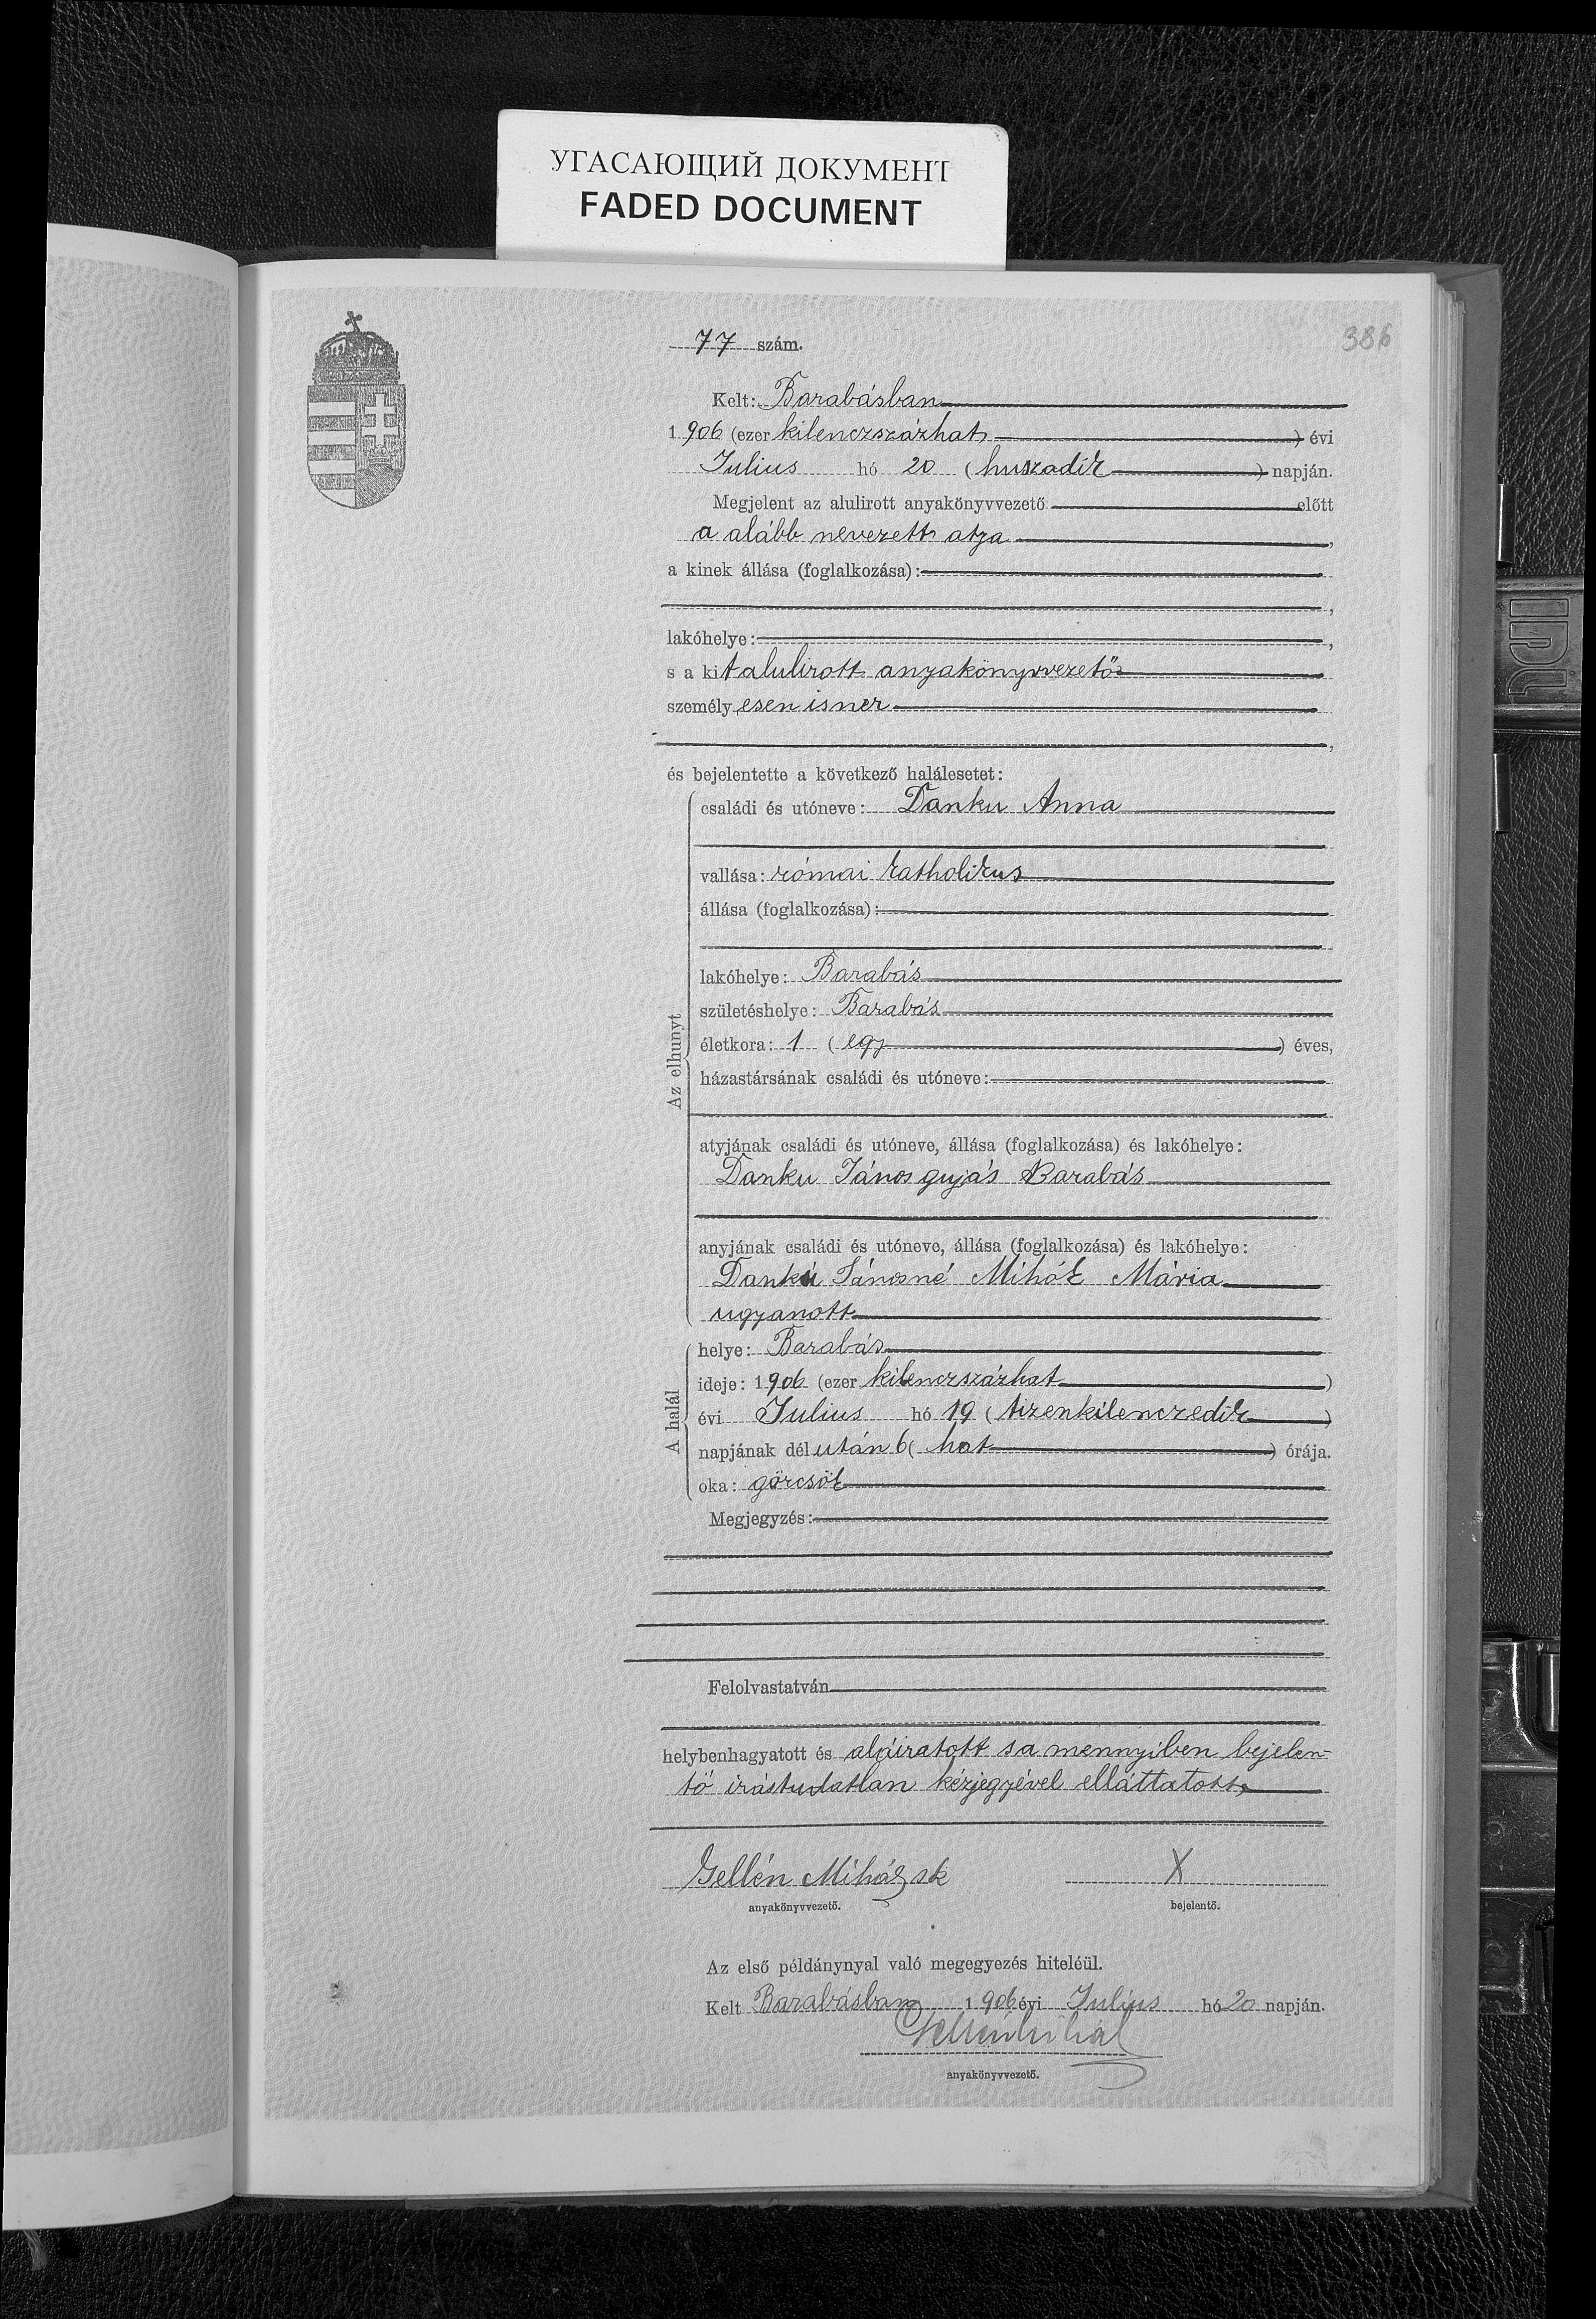 УГАСАЮЩИЙ ДОКУМЕНТ
FADED DOCUMENT
386
77 szám.
Kelt: Barabásban
1906 (ezer kilenczszázhat) évi
Julius hó 20 (huszadik) napján.
Megjelent az alulirott anyakönyvvezető előtt
a alább nevezett atya,
a kinek állása (foglalkozása):
,
lakóhelye: ,
s a kit alulirott anyakönyvvezető
személyesen ismer
,
és bejelentette a következő halálesetet:
Az elhunyt
családi és utóneve: Danku Anna
vallása: római katholikus
állása (foglalkozása):
lakóhelye: Barabás
születéshelye: Barabás
életkora: 1 (egy) éves,
házastársának családi és utóneve:
atyjának családi és utóneve, állása (foglalkozása) és lakóhelye:
Danku János gujás Barabás
anyjának családi és utóneve, állása (foglalkozása) és lakóhelye:
Danku Jánosné Mihók Mária
ugyanott
A halál
helye: Barabás
ideje: 1906 (ezer kilenczszázhat)
évi Julius hó 19 (tizenkilenczedik)
napjának délután 6 (hat) órája.
oka: görcsök
Megjegyzés:
Felolvastatván
helybenhagyatott és aláiratott s a mennyiben bejelen-
tő irástudatlan kézjegyével elláttatott,
Gellén Mihály sk X
anyakönyvvezető. bejelentő.
Az első példánynyal való megegyezés hiteléül.
Kelt Barabásban 1906 évi Julius hó 20 napján.
Gellén Mihály
anyakönyvvezető.